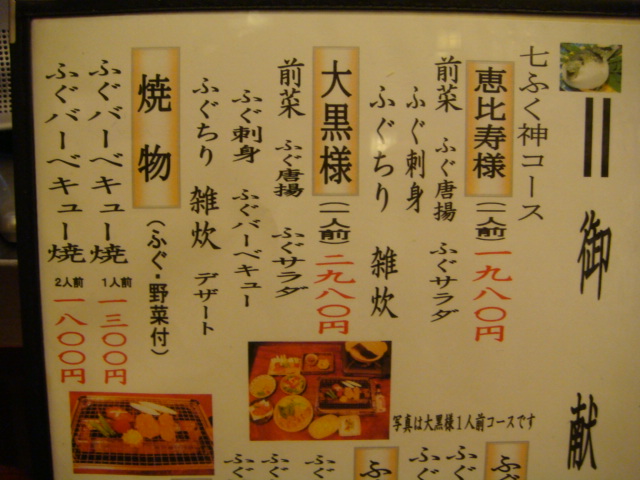 御献
七ふく神コース
恵比寿様(一人前)一九八〇円
前菜 ふぐ唐揚 ふぐサラダ
ふぐ刺身
ふぐちり 雑炊
大黒様(一人前)二九八〇円
前菜 ふぐ唐揚 ふぐサラダ
ふぐ刺身 ふぐバーベキュー
ふぐちり 雑炊 デザート
焼物(ふぐ・野菜付)
ふぐバーベキュー焼 1人前 一三〇〇円
ふぐバーベキュー焼 2人前 一八〇〇円
写真は大黒様1人前コースです
ふぐ
ふぐ
ふ
ふぐ
ふぐ
ふぐ